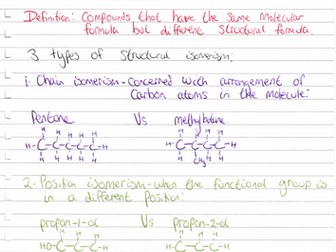 Definition: Compounds that have the same molecular
formula but different structural formula.
3 types of structural isomerism:
1. Chain isomerism - Concerned with arrangement of
Carbon atoms in the molecule:
Pentane Vs methylbutane
H H H H H
H-C-C-C-C-C-H
H H H H H
H H H H
H-C-C-C-C-H
H CH3 H H
2. Position isomerism - when the functional group is
in a different position:
propan-1-ol Vs propan-2-ol
H H H
HO-C-C-C-H
H H H
H-C-C-C-H